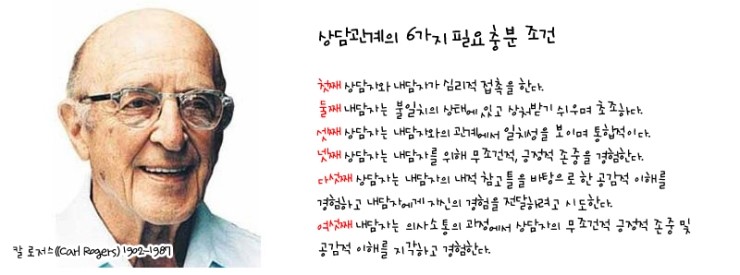 상담관계의 6가지 필요충분 조건
첫째 상담자와 내담자가 심리적 접촉을 한다.
둘째 내담자는 불일치의 상태에 있고 상처받기 쉬우며 초조하다.
셋째 상담자는 내담자와의 관계에서 일치성을 보이며 통합적이다.
넷째 상담자는 내담자를 위해 무조건적, 긍정적 존중을 경험한다.
다섯째 상담자는 내담자의 내적 참고틀을 바탕으로 한 공감적 이해를
경험하고 내담자에게 자신의 경험을 전달하려고 시도한다.
여섯째 내담자는 의사소통의 과정에서 상담자의 무조건적 긍정적 존중 및
공감적 이해를 지각하고 경험한다.
칼 로저스((Carl Rogers) 1902-1987